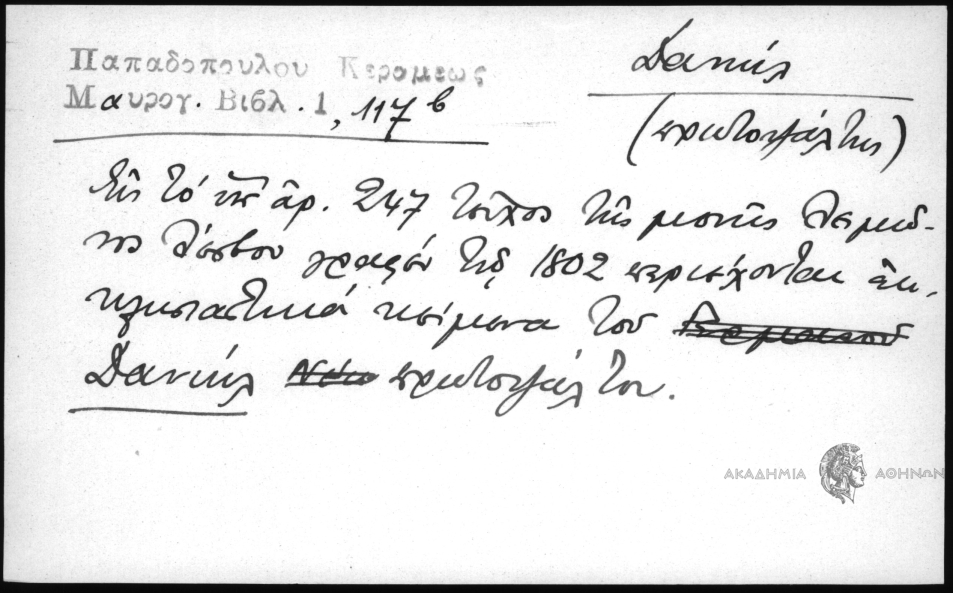 Παπαδοπούλου Κεραμεως
Μαυρογ. Βιβλ. 1, 117β
Δανιήλ
(πρωτοψάλτης)
Εἰς τὸ ὑπ' ἀρ. 247 τεῦχος τῆς μονῆς Λειμῶ-
νος Λέσβου γραφὲν τῷ 1802 περιέχονται ἐκ-
κλησιαστικά κείμενα τοῦ
Δανιήλ πρωτοψάλτου.
ΑΚΑΔΗΜΙΑ ΑΘΗΝΩΝ